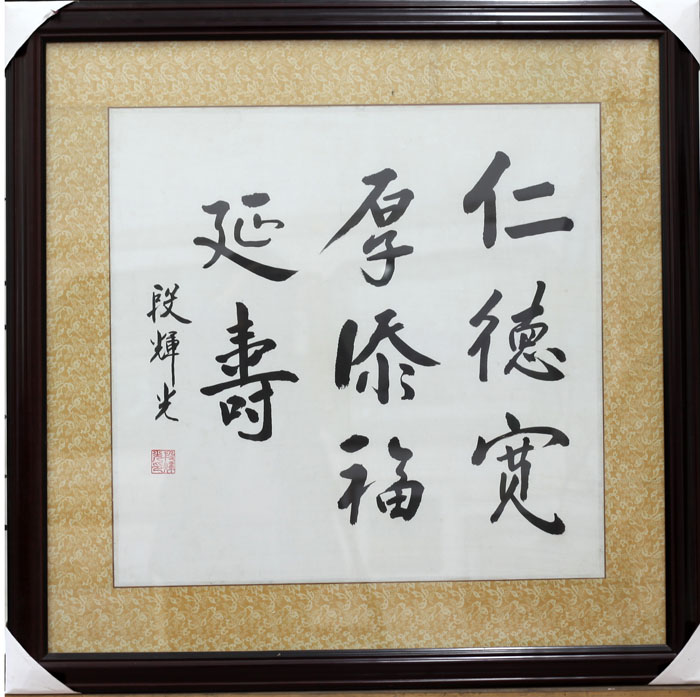 仁德寛
厚添福
延壽
段輝光